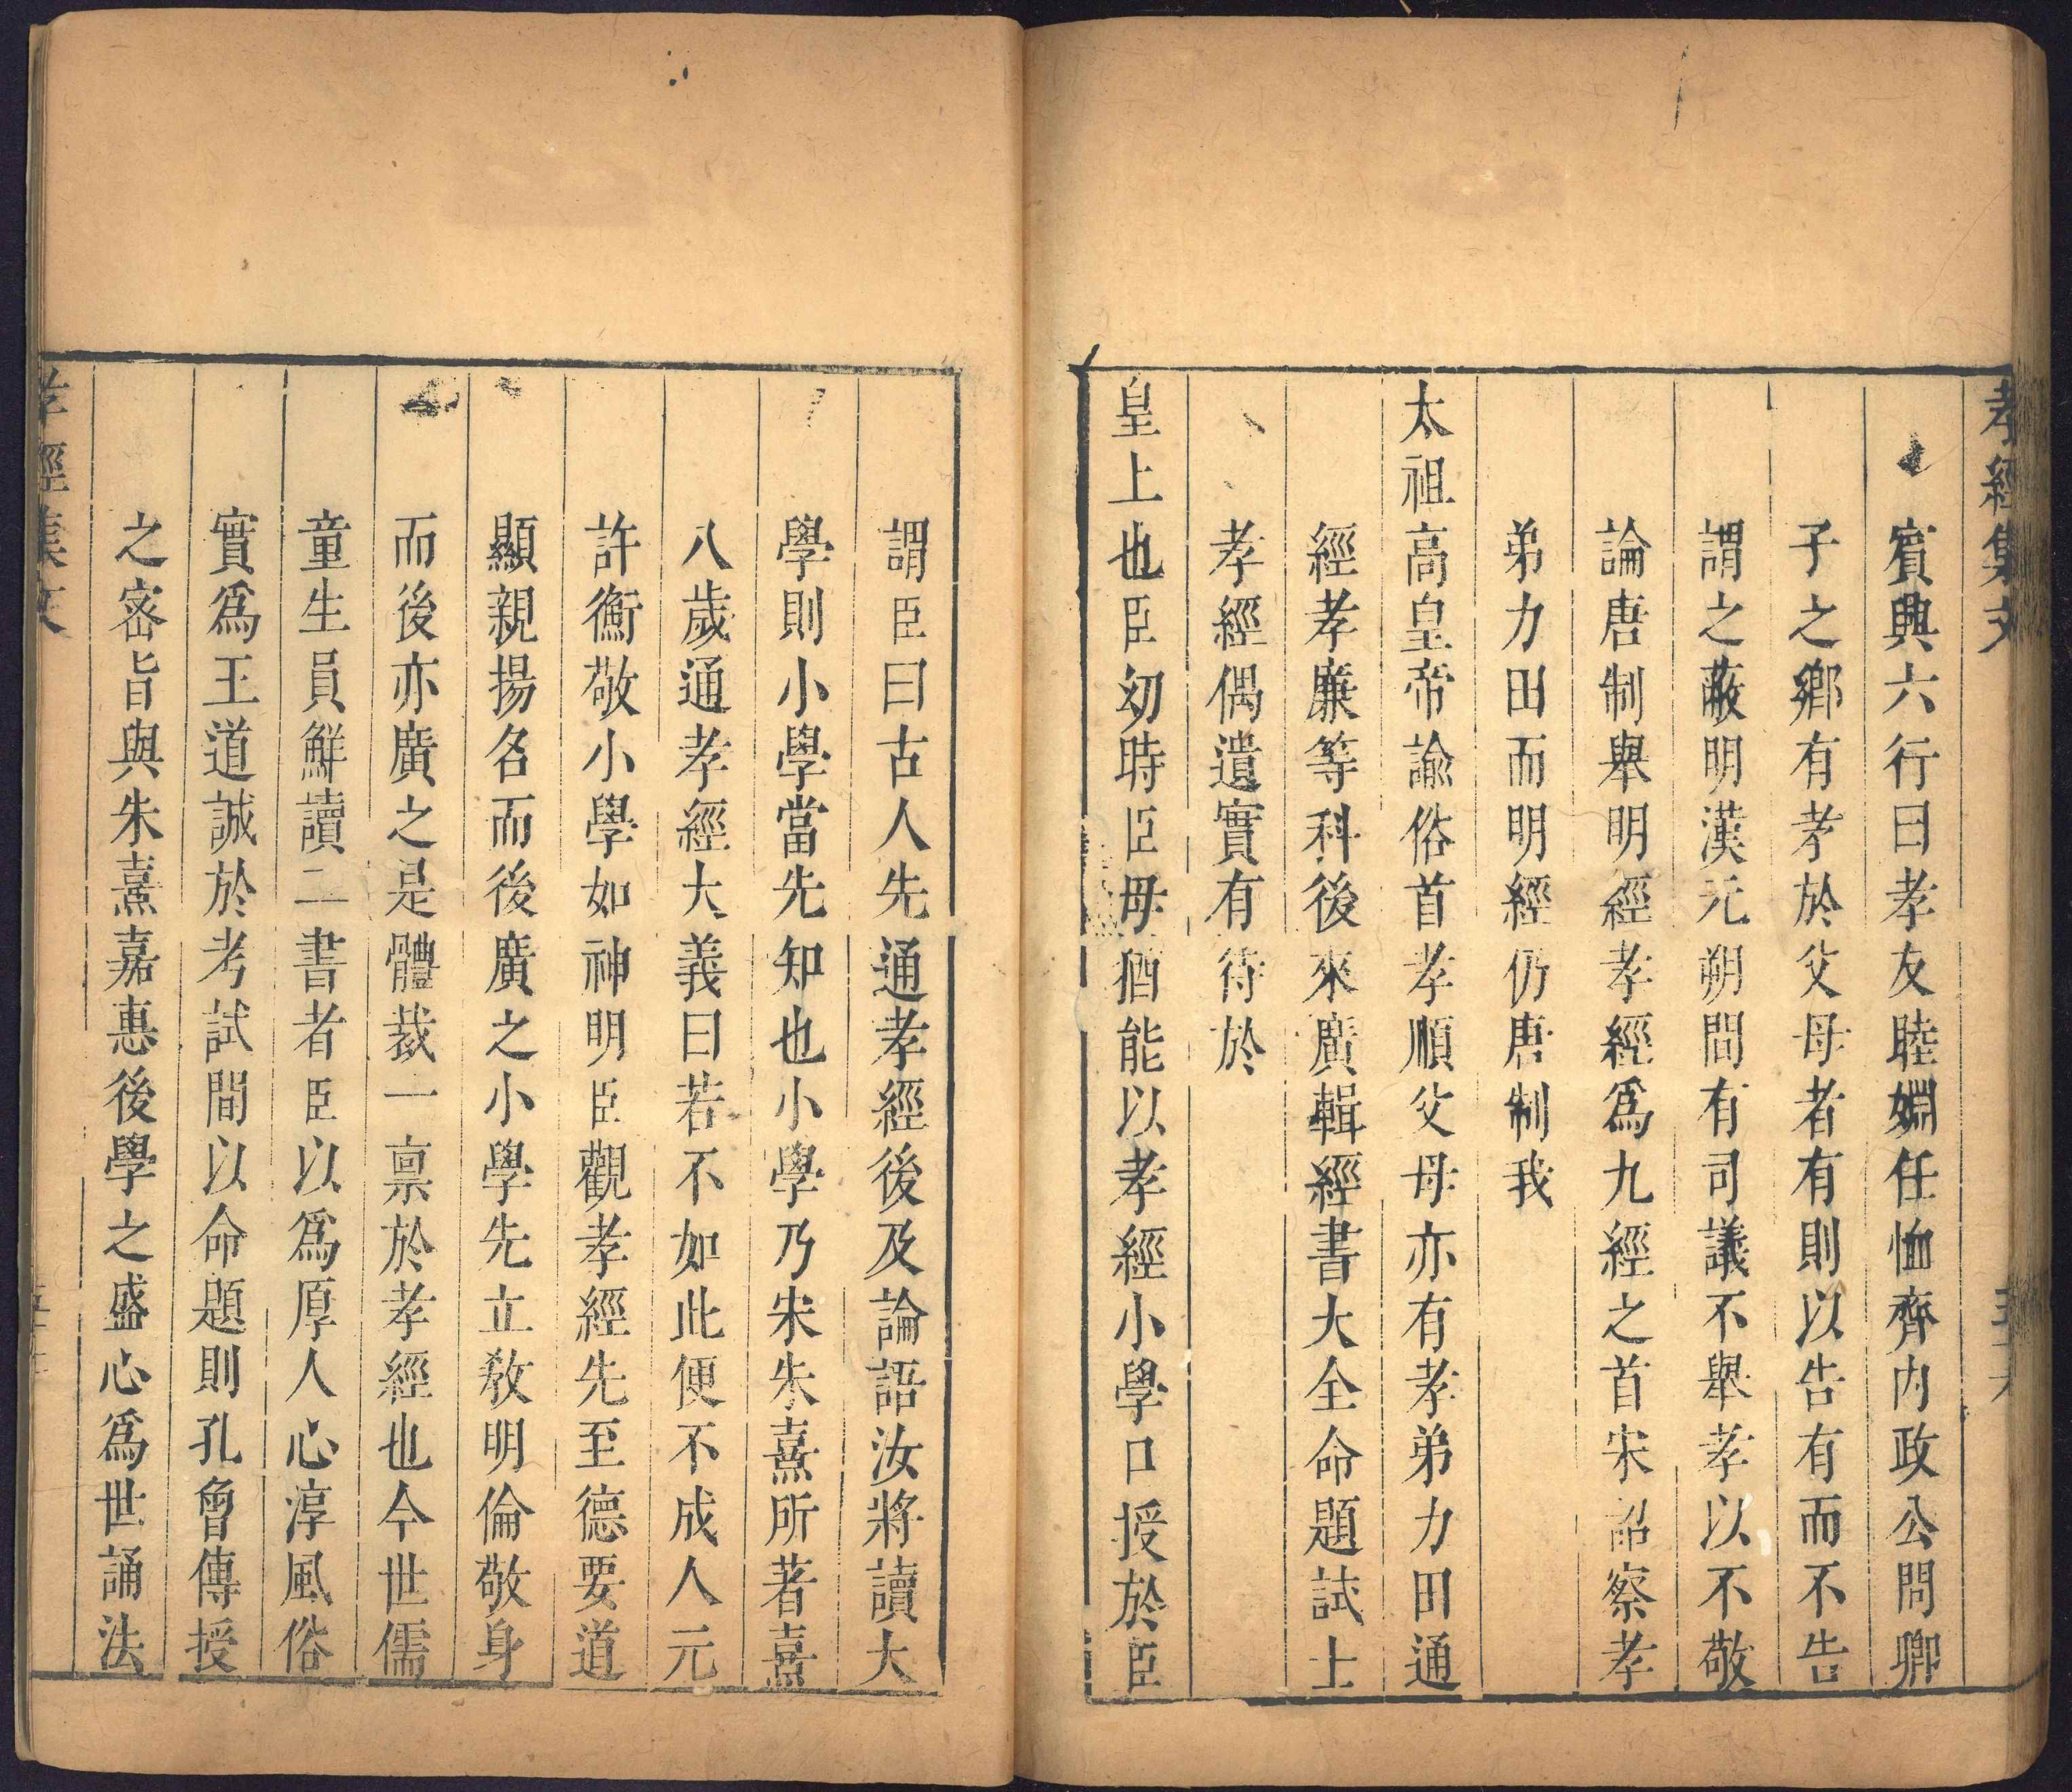 孝經集文
賓興六行曰孝友睦婣任恤齊内政公問卿
子之鄉有孝於父母者有則以告有而不告
謂之蔽明漢元朔間有司議不舉孝以不敬
論唐制舉明經孝經爲九經之首宋詔察孝
弟力田而明經仍唐制我
太祖高皇帝諭俗首孝順父母亦有孝弟力田通
經孝廉等科後來廣輯經書大全命題試士
孝經偶遺實有待於
皇上也臣幼時臣母猶能以孝經小學口授於臣
謂臣曰古人先通孝經後及論語汝將讀大
學則小學當先知也小學乃宋朱熹所著熹
八歲通孝經大義曰若不如此便不成人元
許衡敬小學如神明臣觀孝經先至德要道
顯親揚名而後廣之小學先立教明倫敬身
而後亦廣之是體裁一禀於孝經也今世儒
童生員鮮讀二書者臣以爲厚人心淳風俗
實爲王道誠於考試間以命題則孔曾傳授
之宻旨與朱熹嘉惠後學之盛心爲世誦法
孝經集文